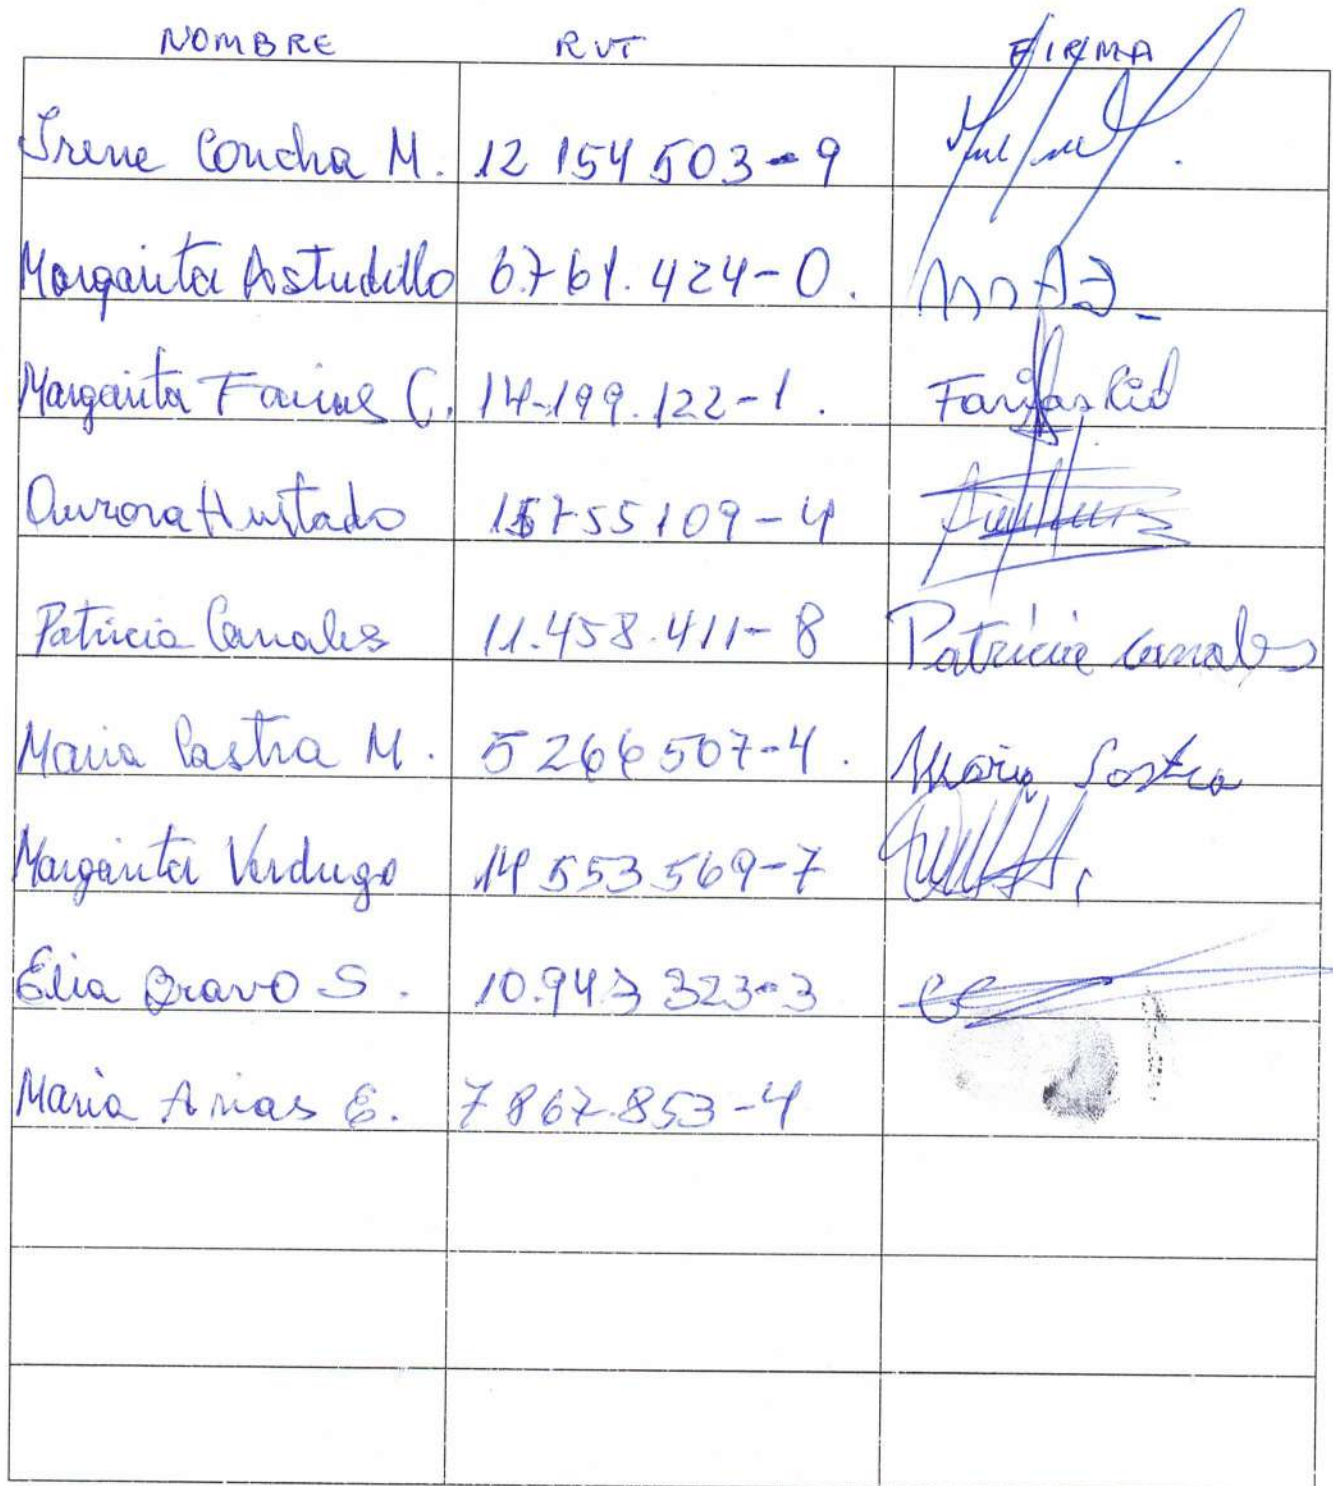 NOMBRE RUT FIRMA
Irene Concha M. 12 154 503-9
Margarita Astudillo 6761.424-0.
Margarita Farias C. 14-199.122-1. Farías Cid
Aurora Hurtado 15755109-4
Patricia Canales 11.458.411-8 Patricia Canales
Maria Castra M. 5266507-4. Maria Castra
Margarita Verdugo 14 553 569-7
Elia Bravo S. 10.943 323-3
Maria Arias E. 7867.853-4